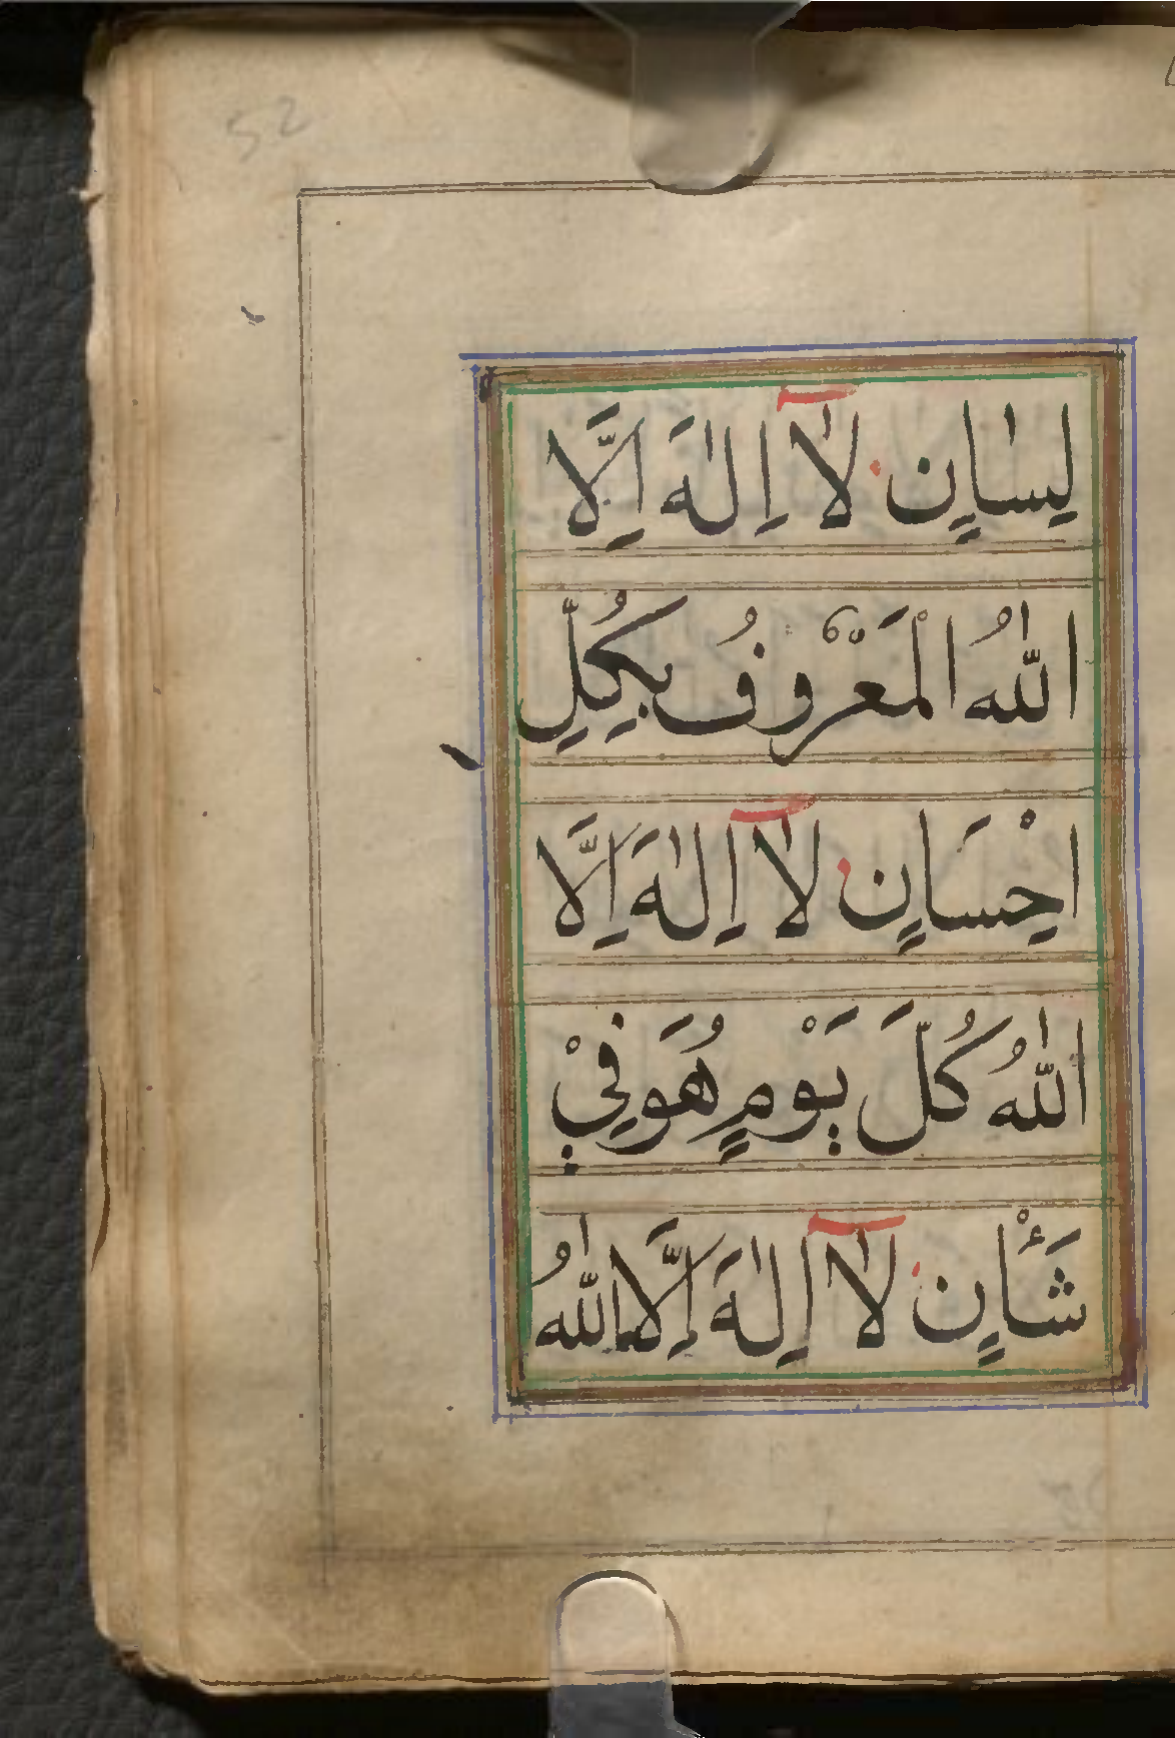 52
لِسٰانٍ لآٰ اِلٰهَ اِلَّا
اللّٰهُ الْمَعْرُوفُ بِكُلِّ
اِحْسَانٍ لآٰ اِلٰهَ اِلَّا
اللّٰهُ كُلَّ يَوْمٍ هُوَ فِيْ
شَأْنٍ لآٰ اِلٰهَ اِلَّا اللّٰهُ